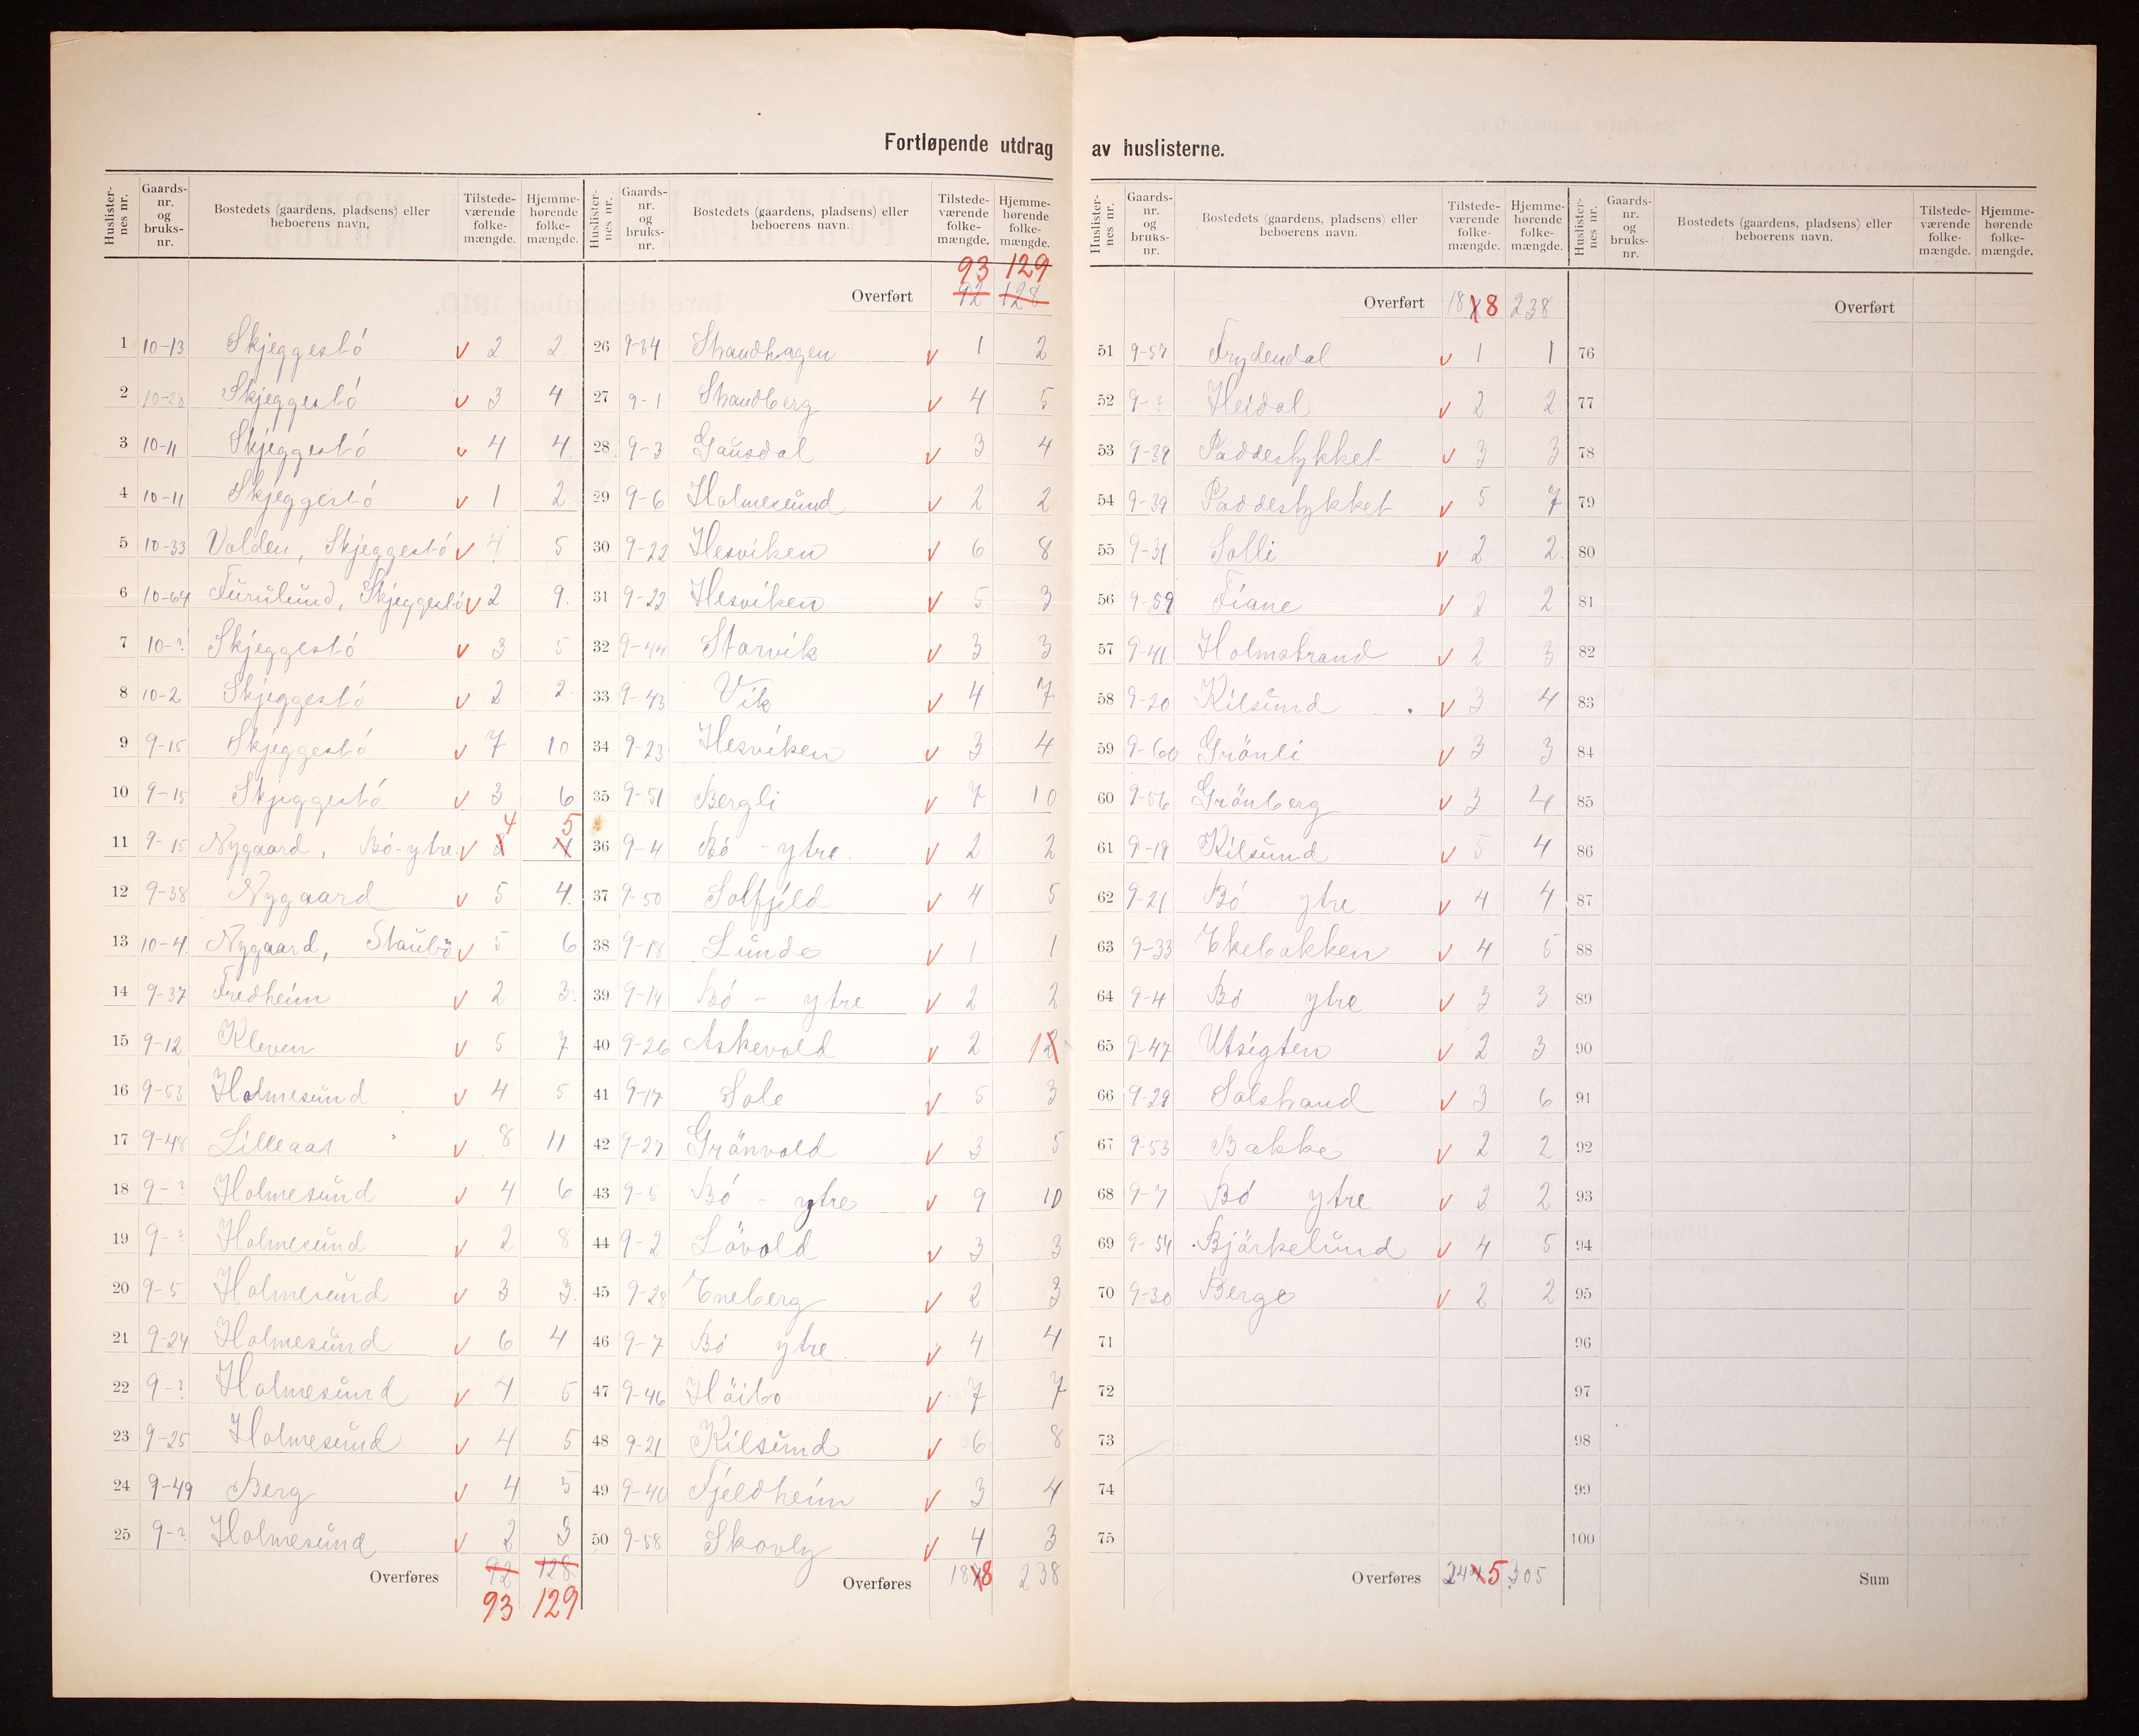 Fortløpende utdrag av huslisterne.
Huslisternes nr. Gaards-nr. og bruks-nr. Bostedets (gaardens, pladsens) eller beboerens navn. Tilstede-værende folke-mængde. Hjemme-hørende folke-mængde.
1 10-13 Skjeggestö v 2 2
2 10-28 Skjeggestö v 3 4
3 10-11 Skjeggestö v 4 4
4 10-11 Skjeggestö v 1 2
5 10-33 Volden, Skjeggestö v 4 5
6 10-64 Furulund, Skjeggestö v 2 9.
7 10-? Skjeggestö v 3 5
8 10-2 Skjeggestö v 2 2
9 9-15 Skjeggestö v 7 10
10 9-15 Skjeggestö v 3 6
11 9-15 Nygaard, Bö-ytre. v 4 5
12 9-38 Nygaard v 5 4.
13 10-4. Nygaard, Staubö v 5 6
14 9-37 Fredheim v 2 3.
15 9-12 Kleven v 5 7
16 9-53 Holmesund v 4 5
17 9-48 Lilleaas v 8 11
18 9-? Holmesund v 4 6
19 9-? Holmesund v 2 8
20 9-5 Holmesund v 3 3.
21 9-24 Holmesund v 6 4
22 9-? Holmesund v 4 5
23 9-25 Holmesund v 4 5
24 9-49 Berg v 4 5
25 9-? Holmesund v 2 3
Overføres 92 128
93 129
Huslisternes nr. Gaards-nr. og bruks-nr. Bostedets (gaardens, pladsens) eller beboerens navn. Tilstede-værende folke-mængde. Hjemme-hørende folke-mængde.
93 129
Overført 92 128
26 9-34 Strandhagen v 1 2
27 9-1 Strandberg v 4 5
28 9-3 Gausdal v 3 4
29 9-6 Holmesund v 2 2
30 9-22 Hesviken v 6 8
31 9-22 Hesviken v 5 3
32 9-44 Starvik v 3 3
33 9-43 Vik v 4 7
34 9-23 Hesviken v 3 4
35 9-51 Bergli v 7 10
36 9-4 Bö - ytre. v 2 2
37 9-50 Solfjeld v 4 5
38 9-18 Lunde v 1 1
39 9-14 Bö - ytre v 2 2
40 9-26 Askevold v 2 1
41 9-17 Sole v 5 3
42 9-27 Grönvold v 3 5
43 9-5 Bö - ytre v 9 10
44 9-2 Lövold v 3 3
45 9-28 Eneberg v 2 3
46 9-7 Bö ytre. v 4 4
47 9-46 Höibo v 7 7
48 9-21 Kilsund v 6 8
49 9-40 Fjeldheim v 3 4
50 9-58 Skovly v 4 3
Overføres 188 238
Huslisternes nr. Gaards-nr. og bruks-nr. Bostedets (gaardens, pladsens) eller beboerens navn. Tilstede-værende folke-mængde. Hjemme-hørende folke-mængde.
Overført 188 238
51 9-57 Frydendal v 1 1
52 9-? Heidal v 2 2
53 9-39 Paddestykket v 3 3
54 9-39 Paddestykket v 5 7
55 9-31 Solli v 2 2.
56 9-59 Tiane v 2 2
57 9-41 Holmstrand v 2 3
58 9-20 Kilsund v 3 4
59 9-60 Grönli v 3 3
60 9-56 Grönberg v 3 4
61 9-19 Kilsund v 5 4
62 9-21 Bö ytre v 4 4
63 9-33 Ekebakken v 4 5
64 9-4 Bö ytre v 3 3
65 9-47 Utsigten v 2 3
66 9-29 Solstrand v 3 6
67 9-53 Bakke v 2 2
68 9-7 Bö ytre v 2 2
69 9-54 Björkelund v 4 5
70 9-30 Berge v 2 2
71
72
73
74
75
Overføres 245 305
Huslisternes nr. Gaards-nr. og bruks-nr. Bostedets (gaardens, pladsens) eller beboerens navn. Tilstede-værende folke-mængde. Hjemme-hørende folke-mængde.
Overført
76
77
78
79
80
81
82
83
84
85
86
87
88
89
90
91
92
93
94
95
96
97
98
99
100
Sum